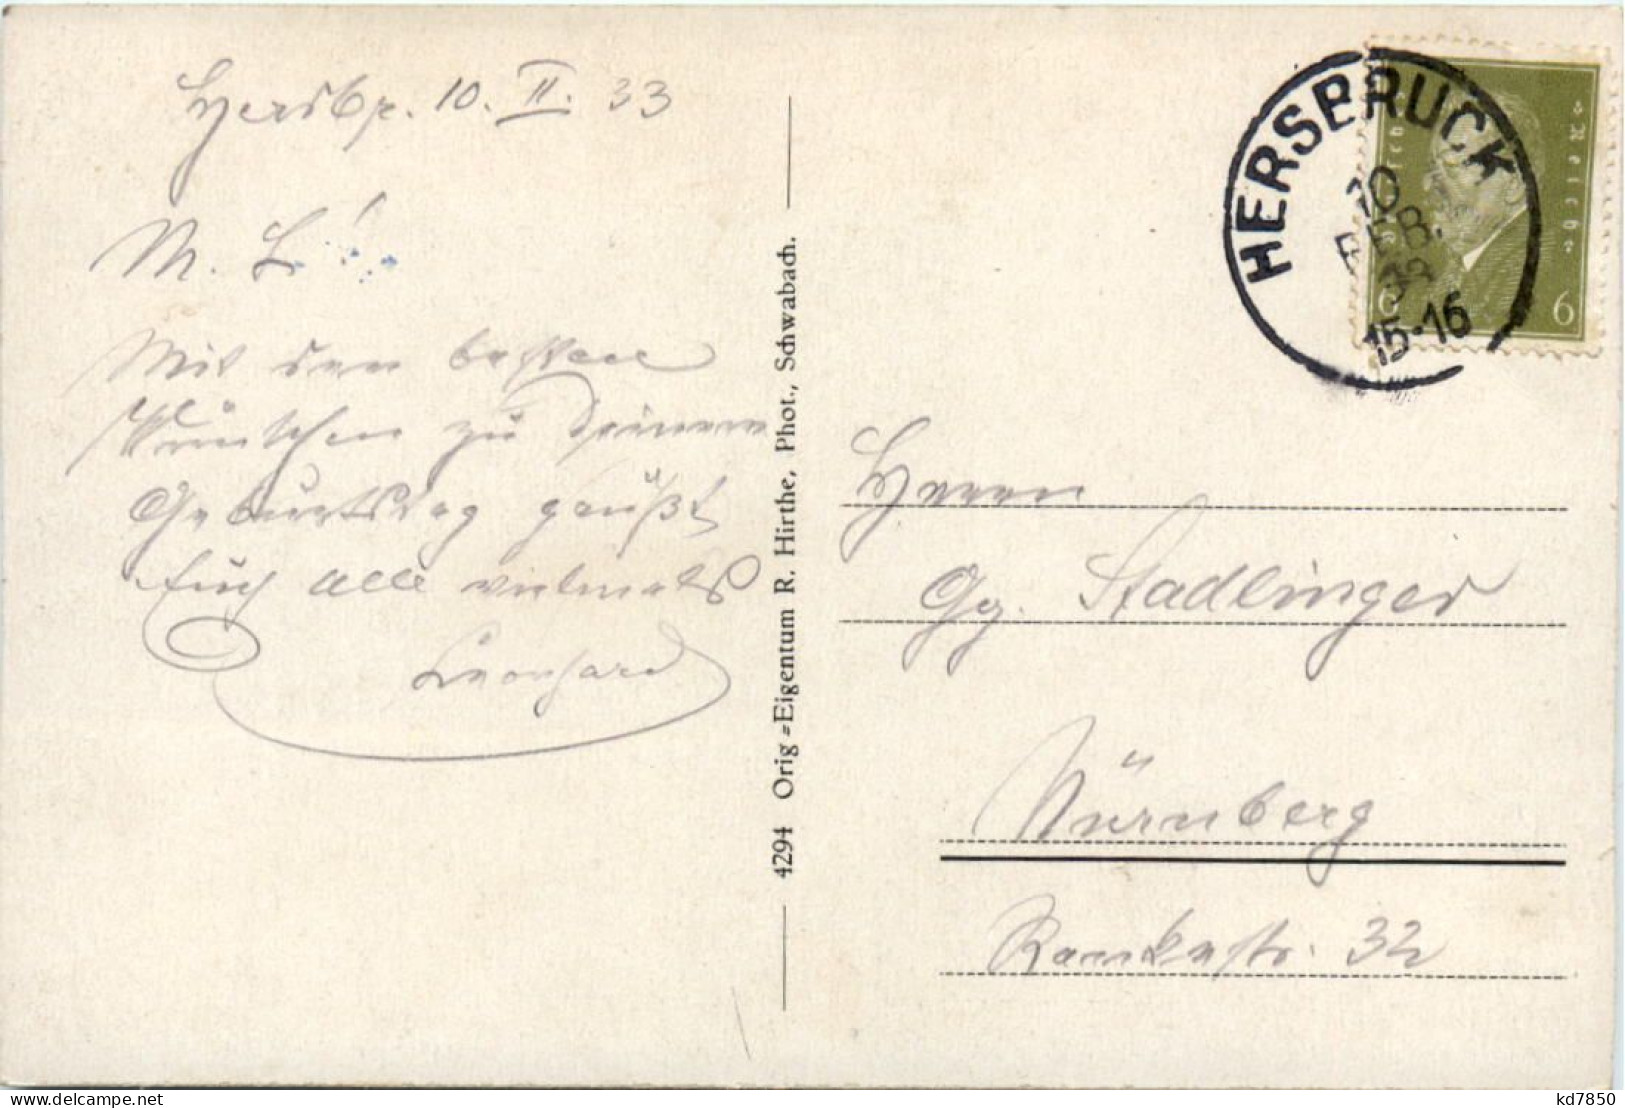 Hersbr. 10. II. 33
M. L!
Mit den besten
Wünschen zu Deinem
Geburtstag grüßt
Euch alle vielmals
Leonhard
4294 Orig.=Eigentum R. Hirthe, Phot., Schwabach.
HERSBRUCK
10
FEB.
33
15-16
Deutsches Reich
6 6
Herrn
Gg. Stadlinger
Nürnberg
32
kd7850